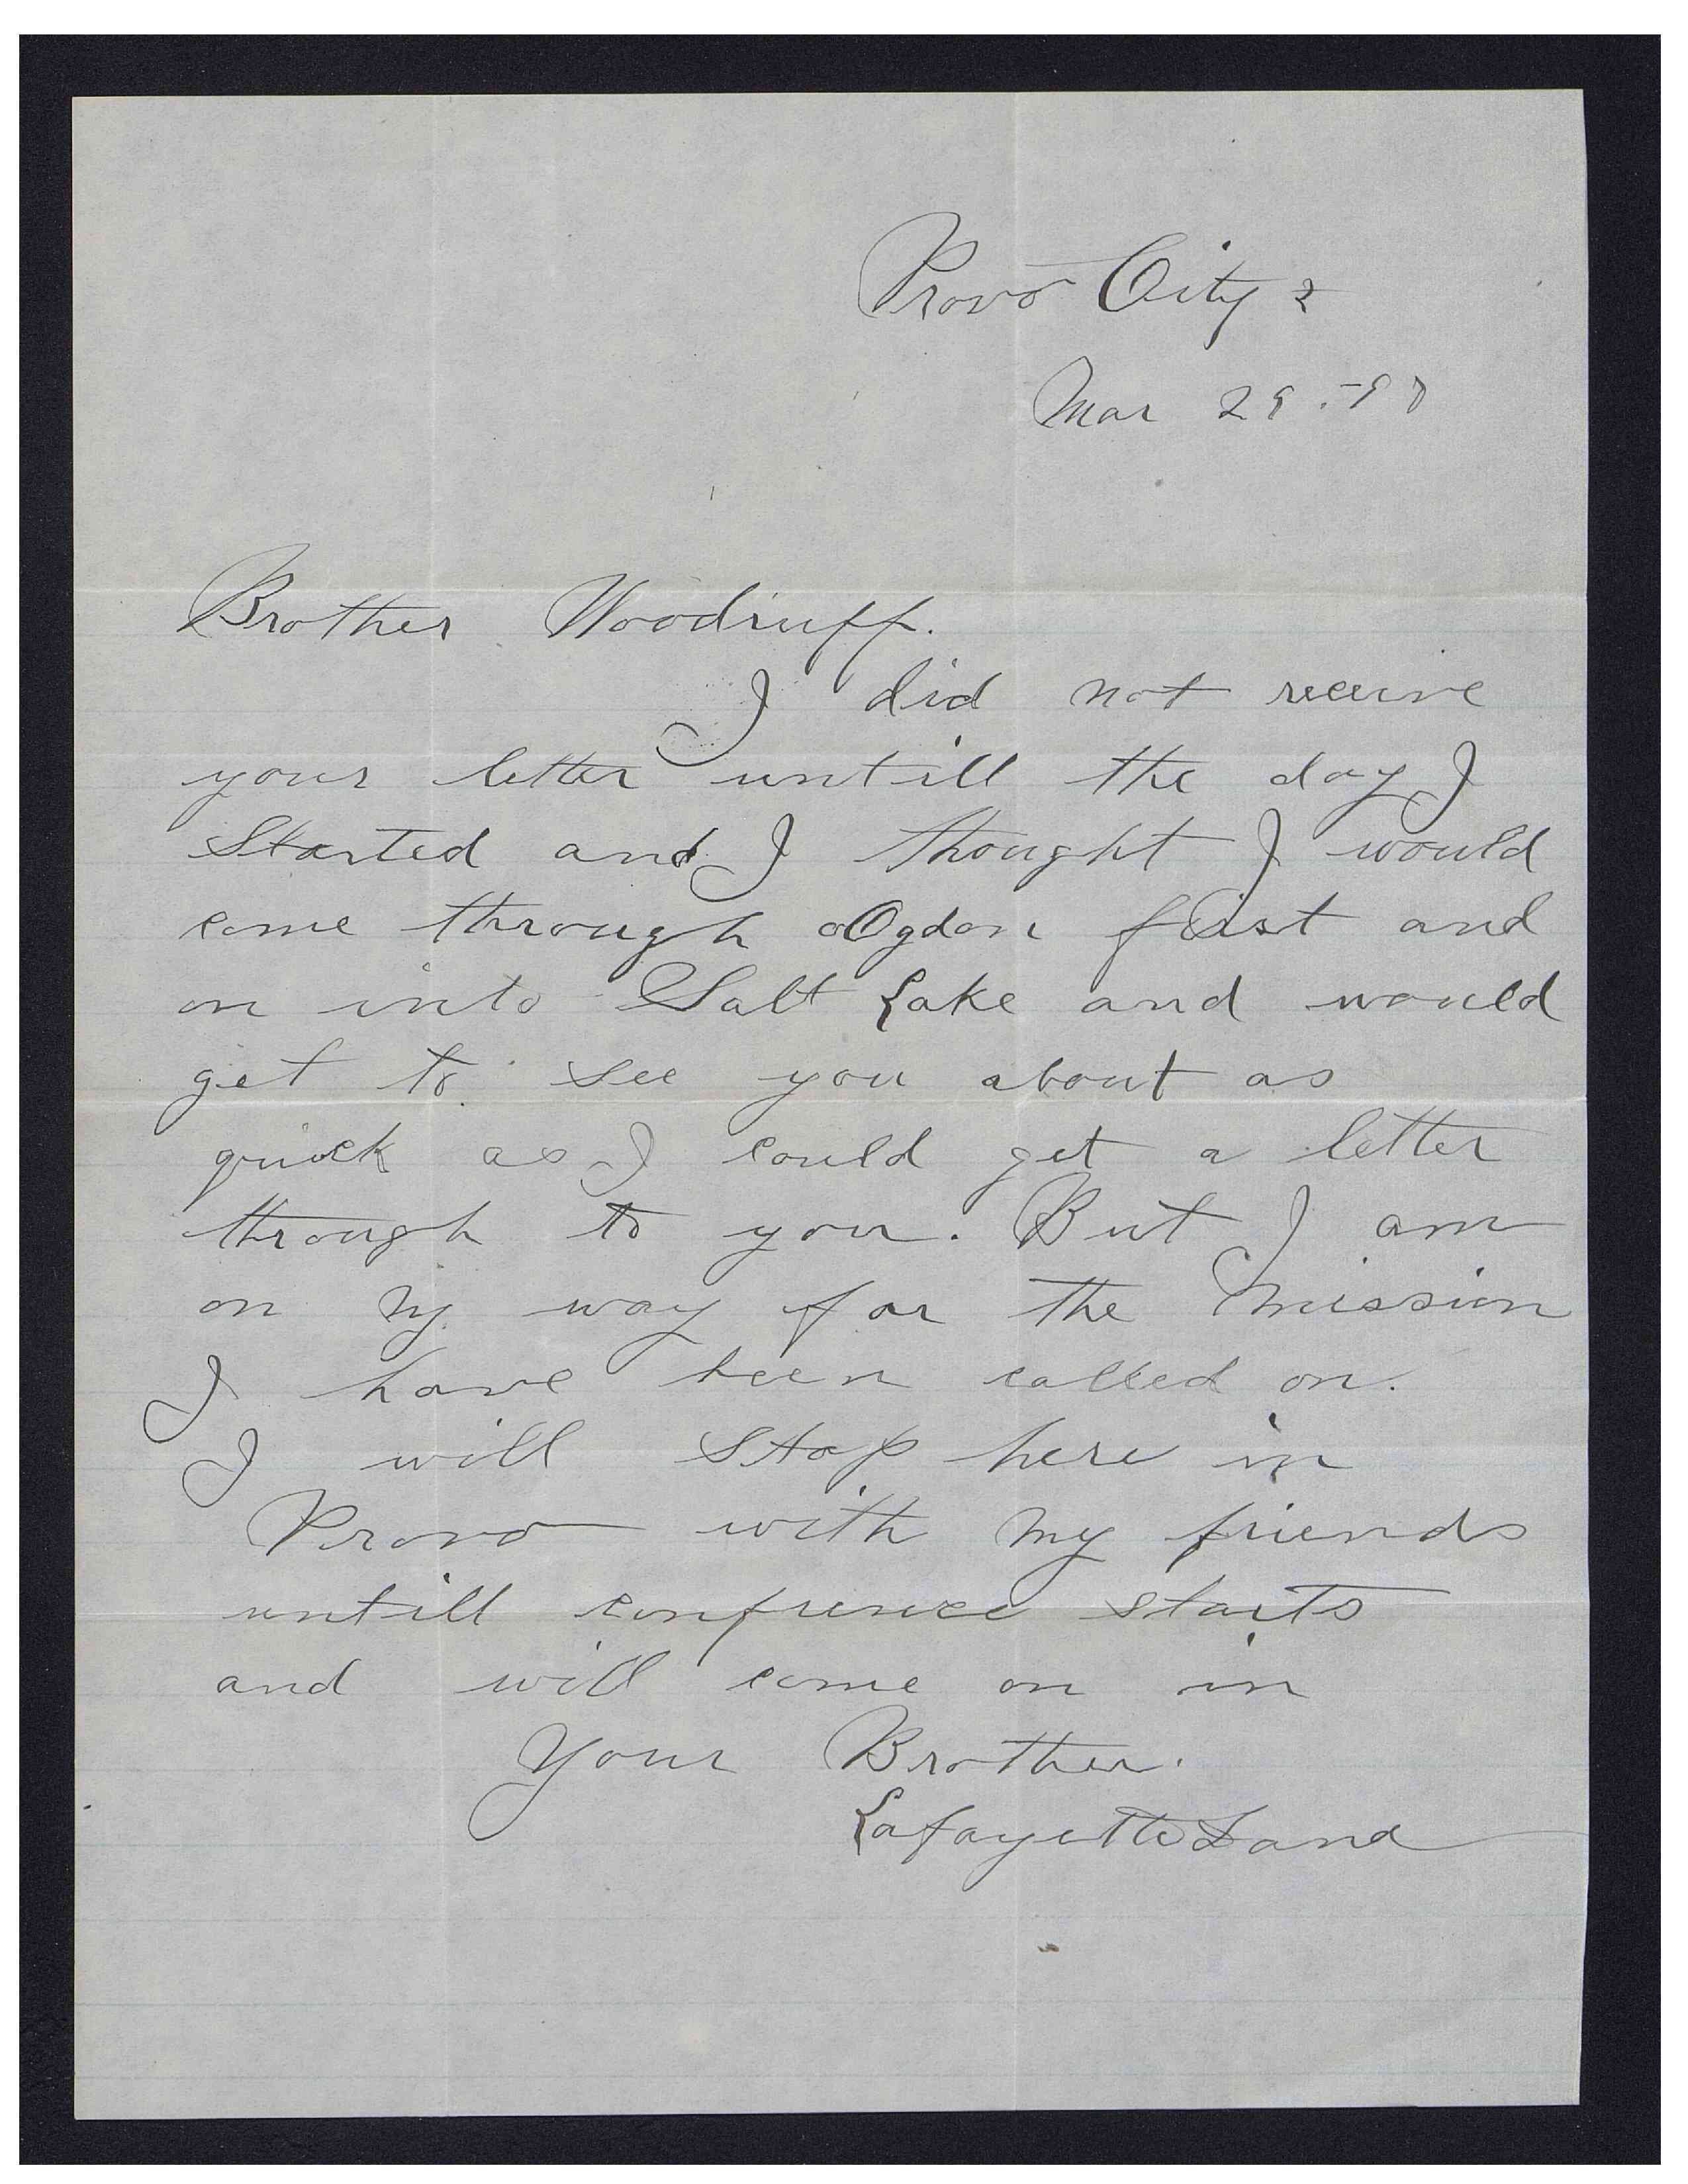 Provo City
Mar 29. -97
Brother Woodruff.
I did not receive
your letter untill the day I
Started and I thought I would
come through Ogdon first and
on into Salt Lake and would
get to see you about as
quick as I could get a letter
through to you. But I am
on my way for the Mission
I have been called on.
I will Stop here in
Provo with my friends
untill confrence starts
and will come on in
Your Brother.
Lafayette Land